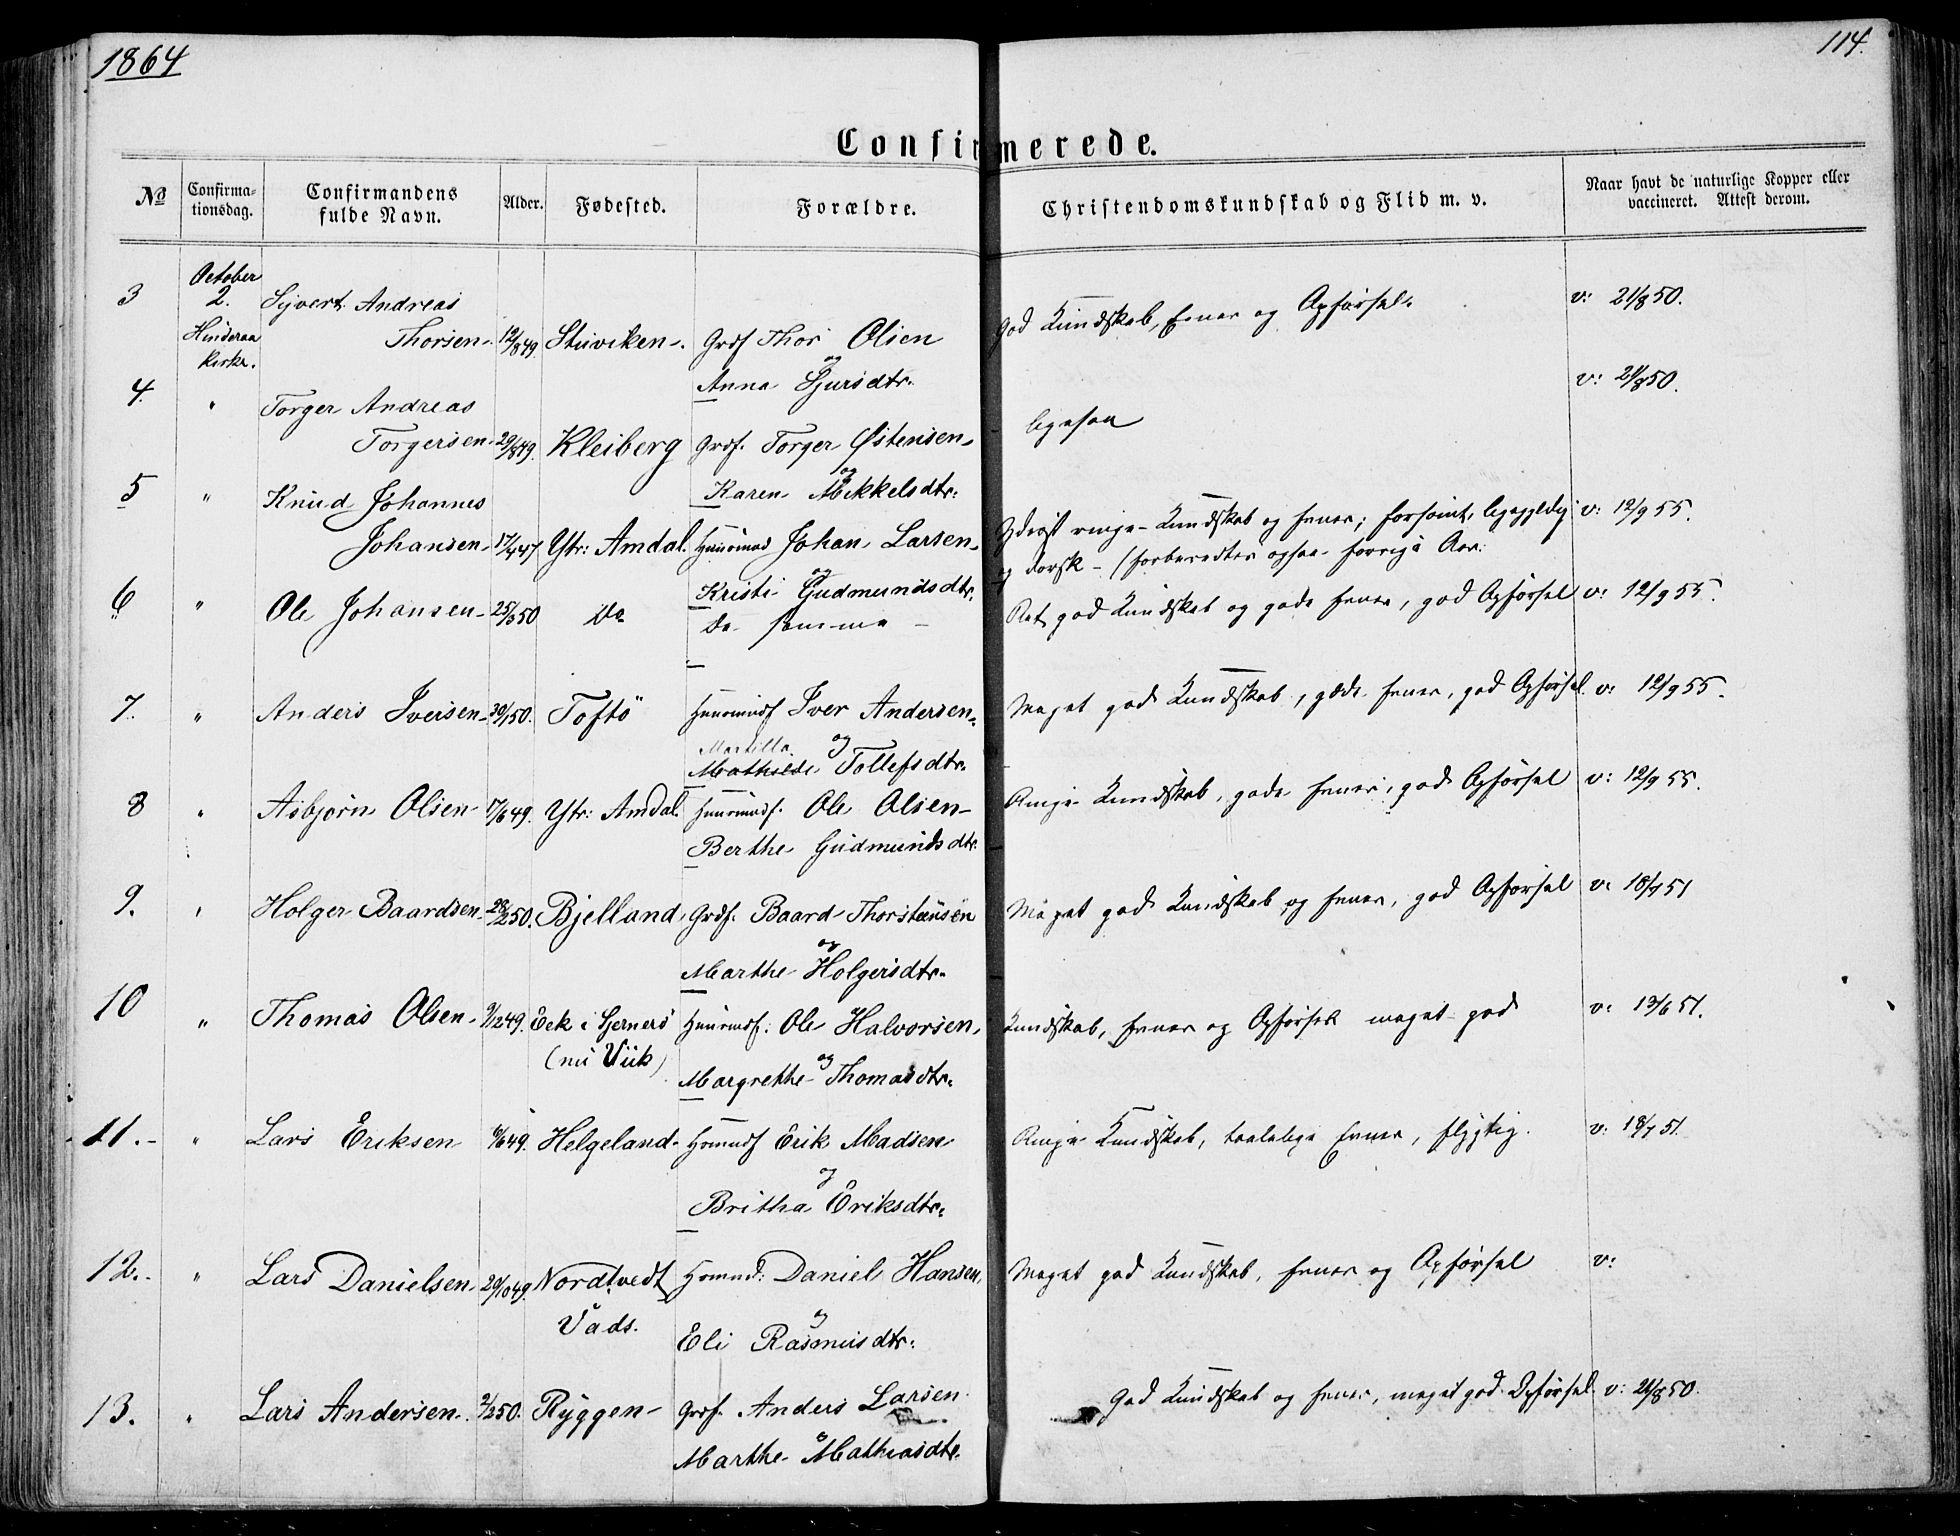 1864
114.
Confirmerede.
No
Confirma-
tionsdag.
Confirmandens
fulde Navn.
Alder.
Fødested.
Forældre.
Christendomskundskab og Flid m. v.
Naar havt de naturlige Kopper eller
vaccineret. Attest derom.
3 October 2. Sivert Andreas God Kundskab, Evner og Opførsel. v: 21/8 50.
Hinderaa Thorsen 12/8 49. Stuviken Grdf Thor Olsen
Kirke. og
Anna Sjursdtr.
4. " Torger Andreas ligesaa v: 21/8 50.
Torgersen 29/8 49. Kleiberg Grdf. Torger Østensen
og
Karen Mikkelsdtr:
5 " Knud Johannes Kundskab og Evner; forsømt, ligegyldig v: 12/9 55.
Johansen 17/4 47 Ytr: Amdal. Johan Larsen og dorsk (forberedtes ogsaa forrige Aar.
og
Kristi Gudmundsdtr.
6 " Ole Johansen 25/3 50 Do De samme Ret god Kundskab og gode Evner, god Opførsel v: 12/9 55.
7. " Anders Iversen 30/1 50. Toftö Huusmdsf Iver Andersen Meget god Kundskab, gode Evner, god Opførsel v: 12/9 55.
Martilla og
Mathilde Tollefsdtr.
8 " Asbjørn Olsen 17/6 49. Ytr: Amdal. Huusmdsf. Ole Olsen Ringe Kundskab, gode Evner, god Opførsel v: 12/9 55.
Berthe Gudmundsdtr.
9. " Holger Baardsen 28/2 50. Bjelland Grdf. Baard Thorstensen Meget god Kundskab og Evner, god Opførsel v: 18/7 51
og
Marthe Holgersdtr.
10 " Thomas Olsen 9/12 49. Eek i Sjernerö Huusmdsf: Ole Halvorsen Kundskab, Evner og Opførsel meget god v: 13/6 51.
(nu Viik) og
Margrethe Thomasdtr.
11. " Lars Eriksen 6/6 49. Helgeland Huusmdsf Erik Madsen Ringe Kundskab, taalelige Evner, flygtig. v: 18/7 51.
og
Britha Eriksdtr.
12. " Lars Danielsen 29/10 49. Nordtvedt Daniel Hansen Meget god Kundskab, Evner og Opførsel v:
Vads. og
Eli Rasmusdtr:
13. " Lars Andersen 2/2 50. Ryggen Grdf. Anders Larsen God Kundskab og Evner, meget god Opførsel. v: 21/8 50.
Marthe Mathiasdtr.